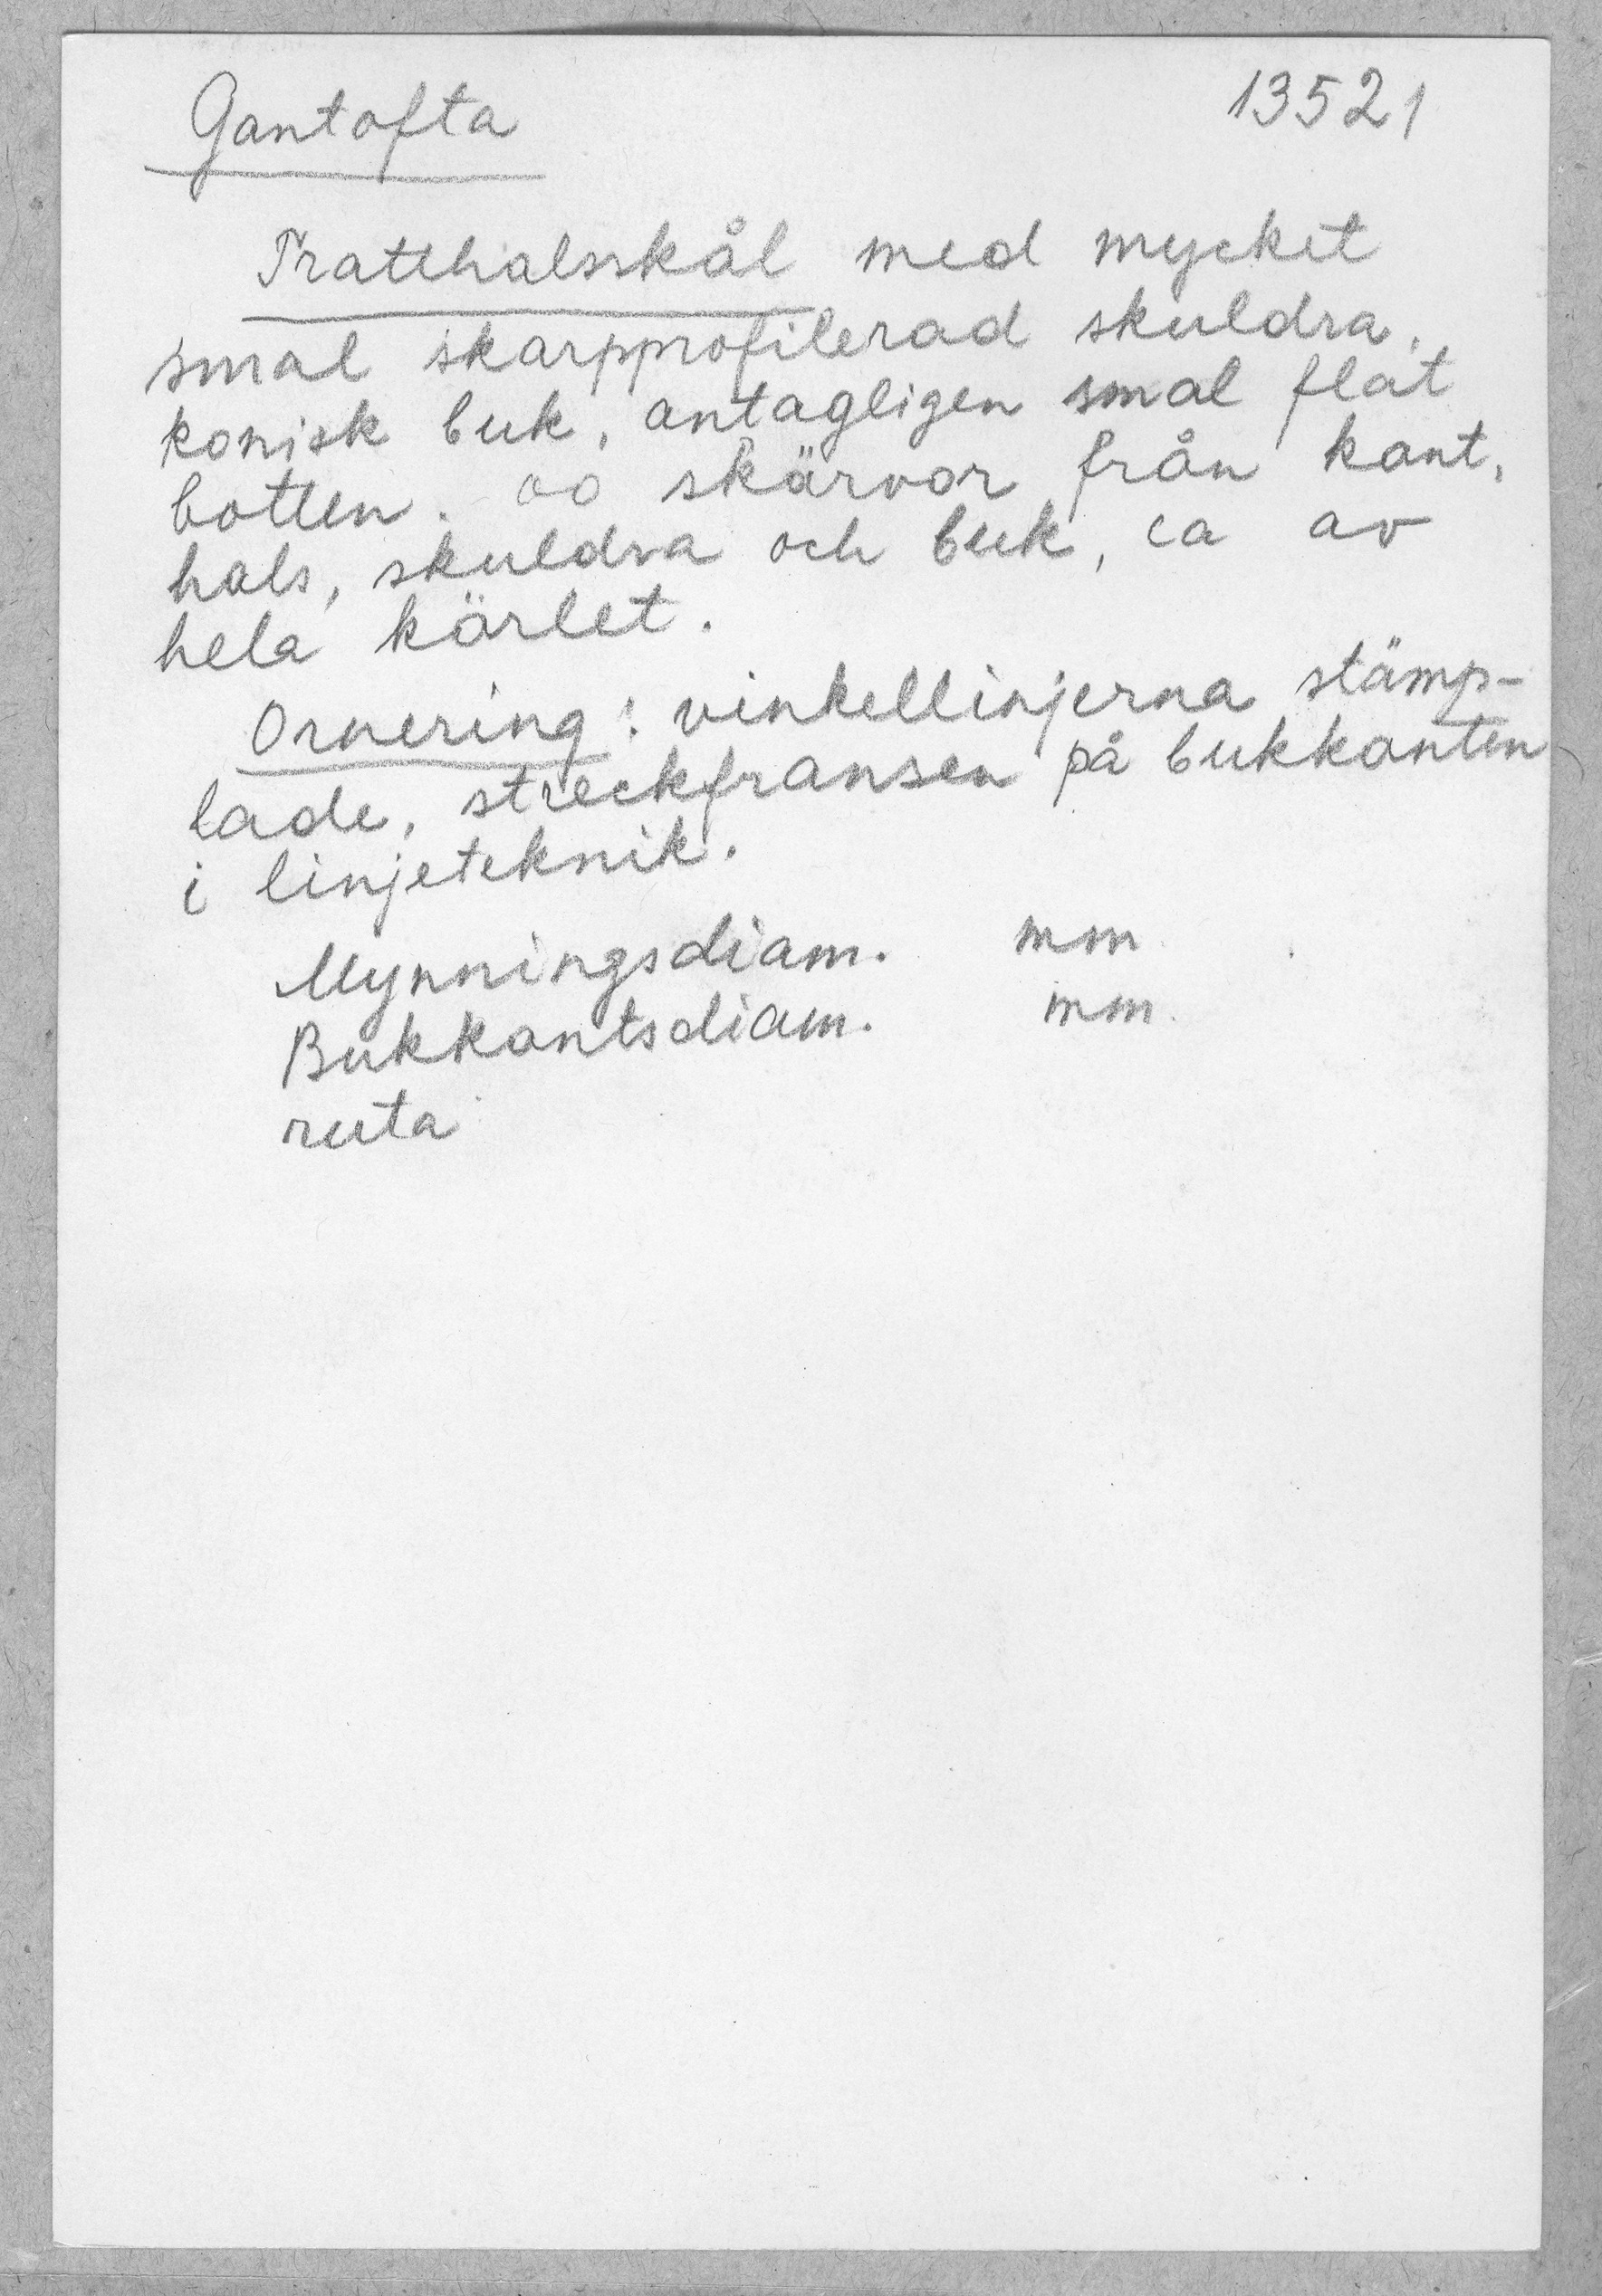 Gantofta 13521
Tratthalsskål med mycket
smal skarpprofilerad skuldra,
konisk buk, antagligen smal flat
botten. oo skärvor från kant,
hals, skuldra och buk, ca av
hela kärlet.
Ornering: vinkellinjerna stämp-
lade, streckfransen på bukkanten
i linjeteknik.
Mynningsdiam. mm
Bukkantsdiam. mm.
ruta